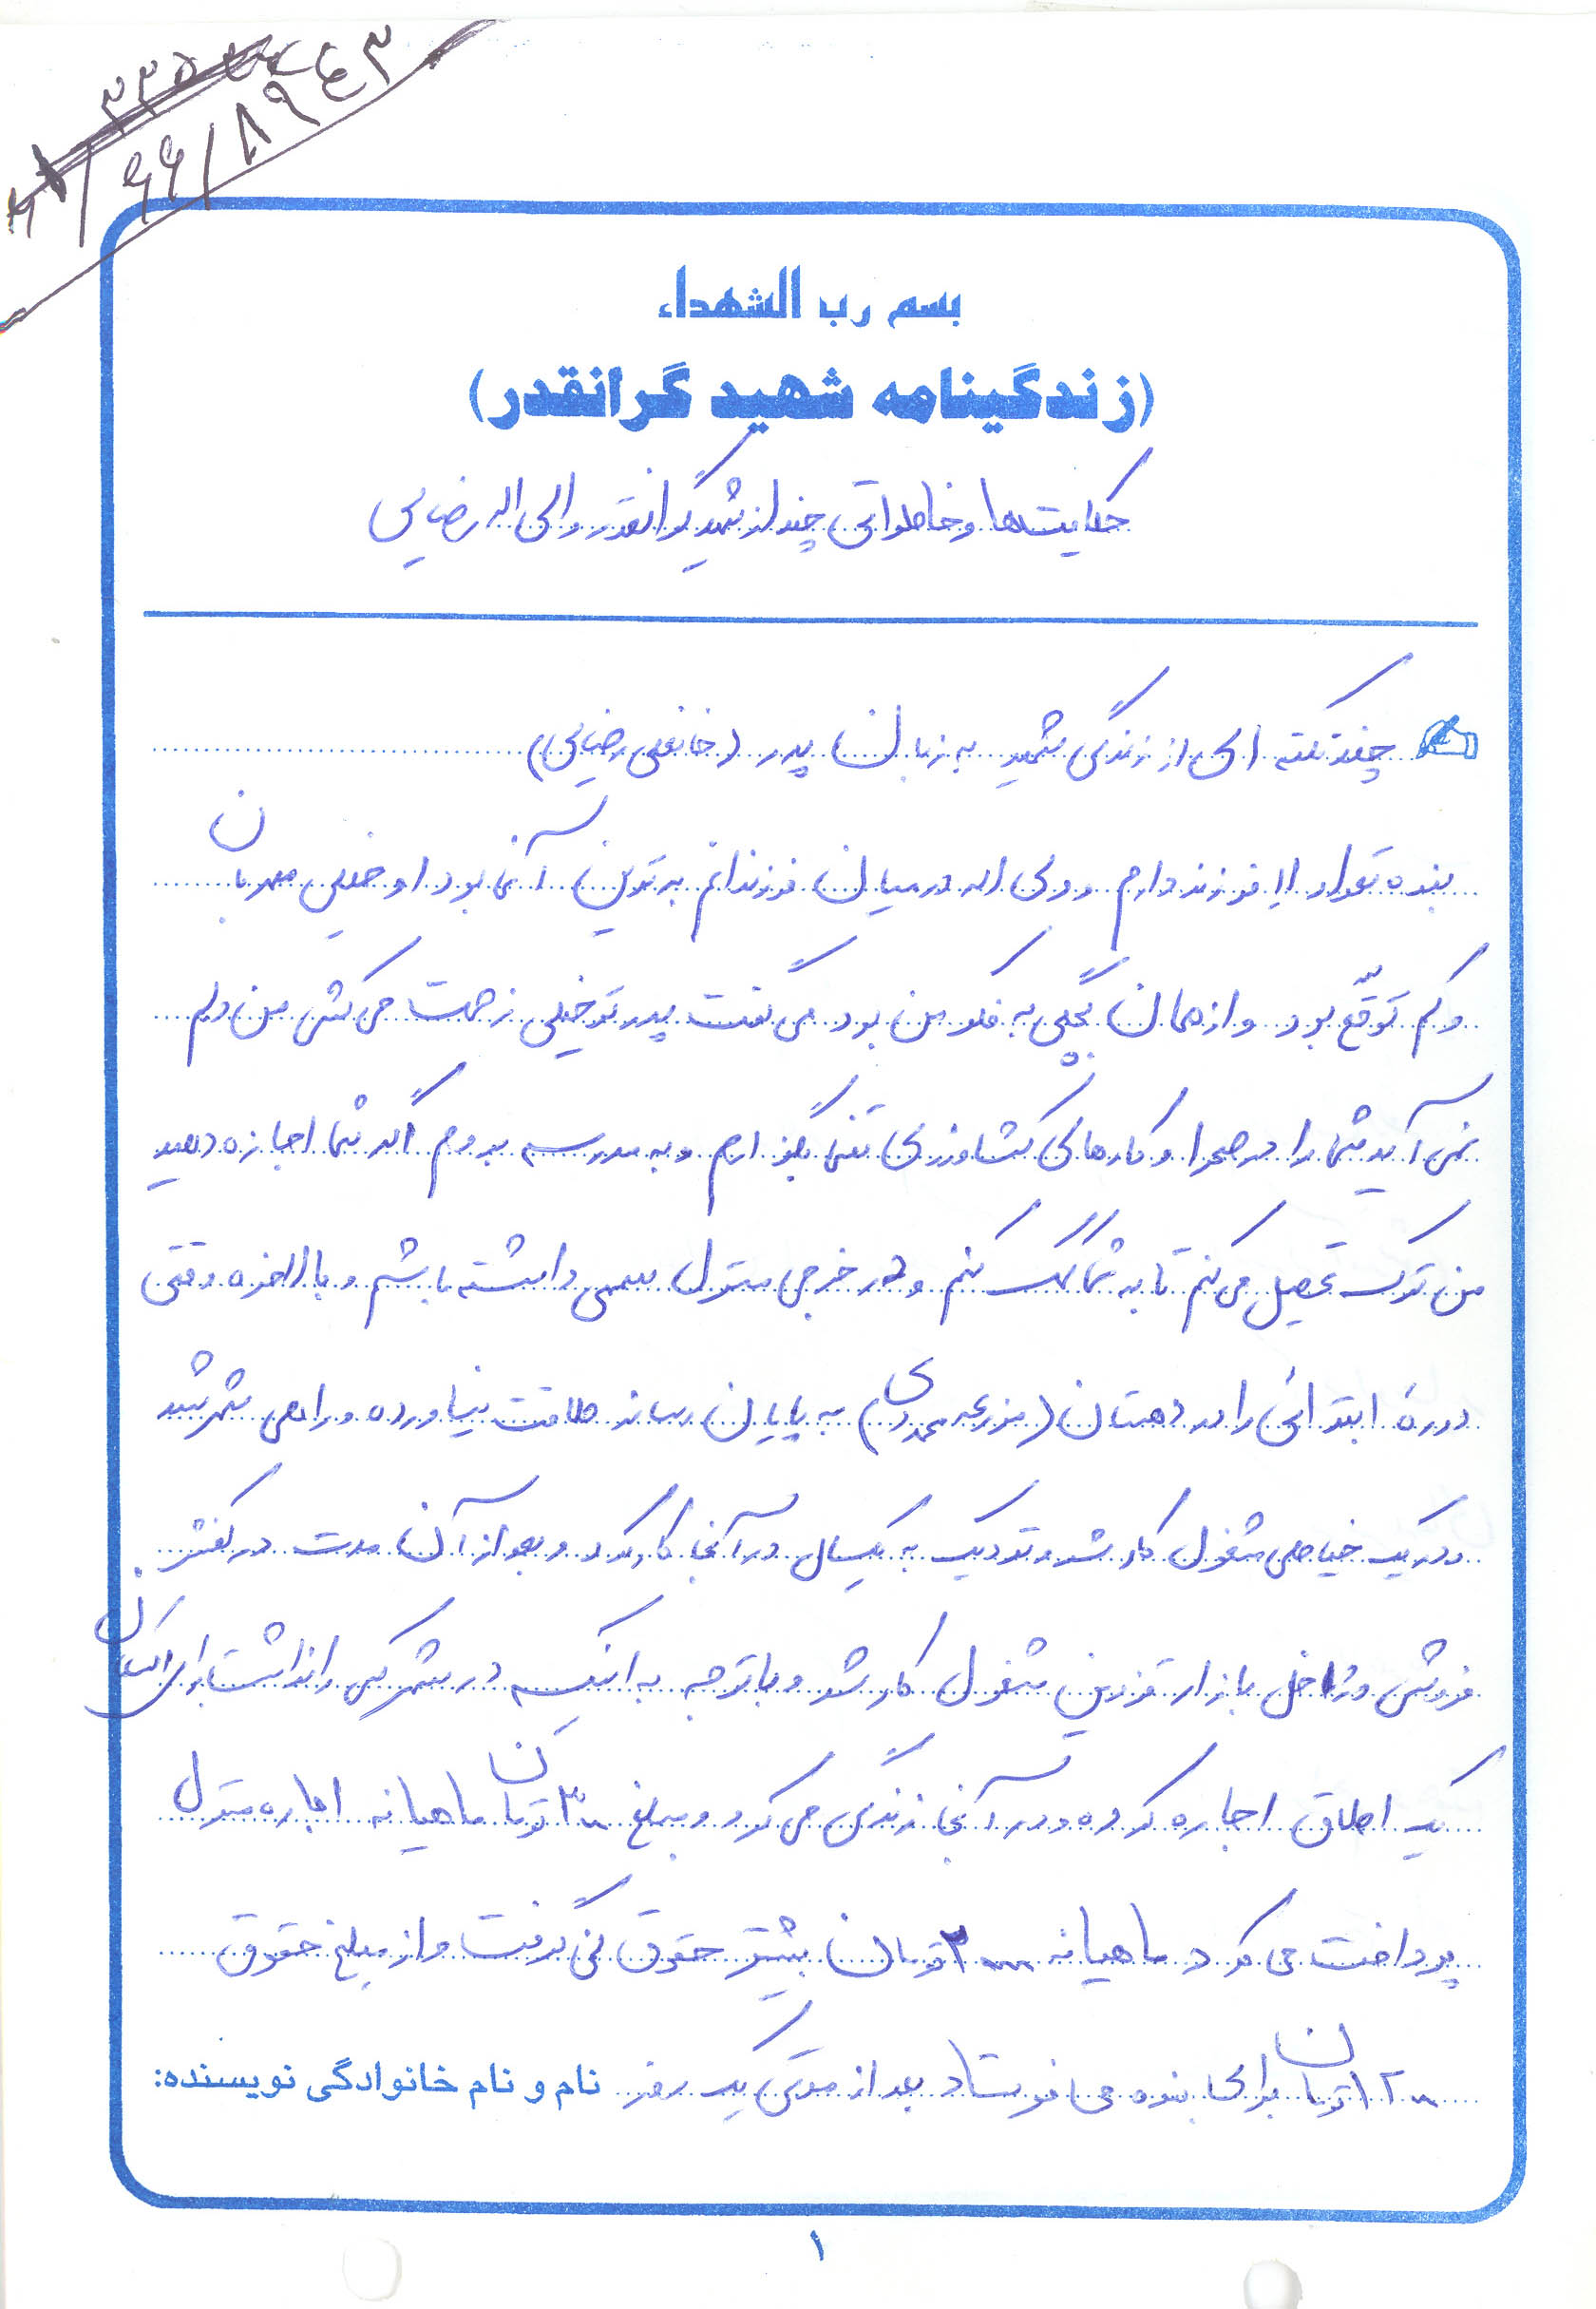 ۶۶/۸۹۴۳
بسم رب الشهداء
(زندگینامه شهید گرانقدر)
حکایت‌ها و خاطراتی چند از شهید گرانقدر والی اله رضایی
چند نکته ای از زندگی شهید به زبان پدر (خانعلی رضایی)
بنده تعداد ۱۱ فرزند دارم و ولی اله در میان فرزندانم بهترین آنها بود او خیلی مهربان
و کم توقّع بود و از همان بچگی به فکر من بود می گفت پدر تو خیلی زحمت می کشی من دلم
نمی آید شما را در صحرا و کارهای کشاورزی تنها بگذارم و به مدرسه بروم اگر شما اجازه دهید
من ترک تحصیل می کنم تا به شما کمک کنم و در خرجی منزل سهمی داشته باشم و بالاخره وقتی
دورهٔ ابتدائی را در دهستان (مزرعه محمدی) به پایان رساند طاقت نیاورده و راهی شهر شد
و در یک خیاطی مشغول کار شد و نزدیک به یکسال در آنجا کار کرد و بعد از آن مدت در کفش
فروشی در داخل بازار قزوین مشغول کار شد و با توجه به اینکه در شهر کسی را نداشت برای اسکان
یک اطاق اجاره کرده و در آنجا زندگی می کرد و مبلغ ۳۰۰ تومان ماهیانه اجاره منزل
پرداخت می کرد ماهیانه ۲۰۰۰ تومان بیشتر حقوق نمی گرفت و از مبلغ حقوق
۱۲۰۰ تومان برای بنده می فرستاد بعد از مدتی یک روز نام و نام خانوادگی نویسنده:
۱